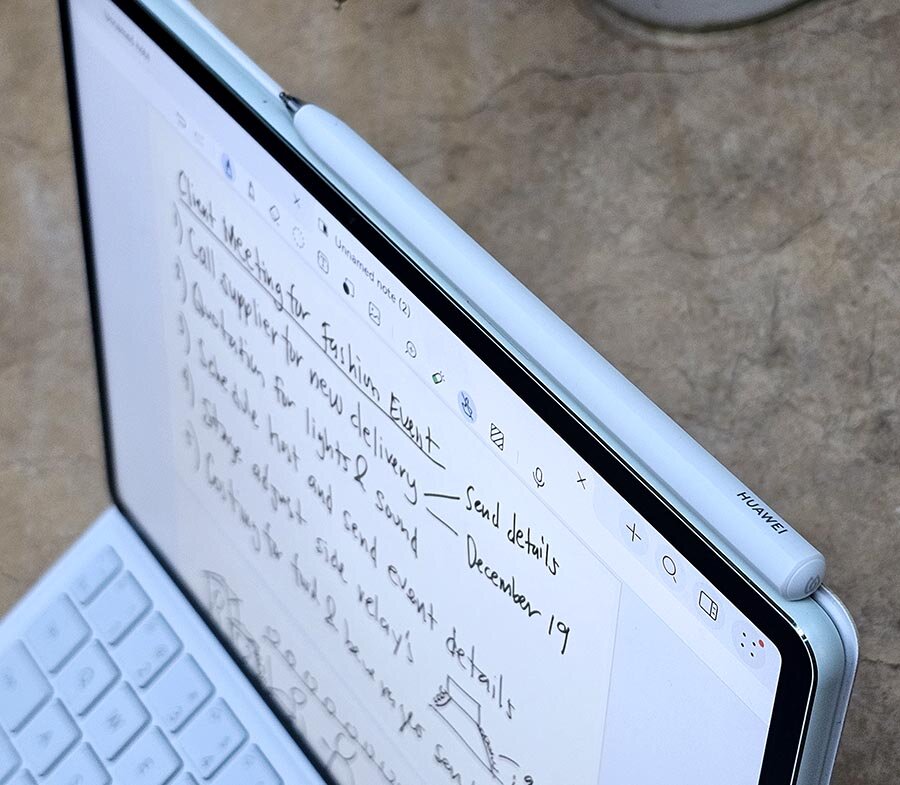 Unnamed note (2)
Client Meeting for Fashion Event
1) Call supplier for new delivery — Send details
December 19
2) Quotation for lights & sound
3) Schedule host and send event details
4) adjust side relay's
5) Costing for food &
HUAWEI